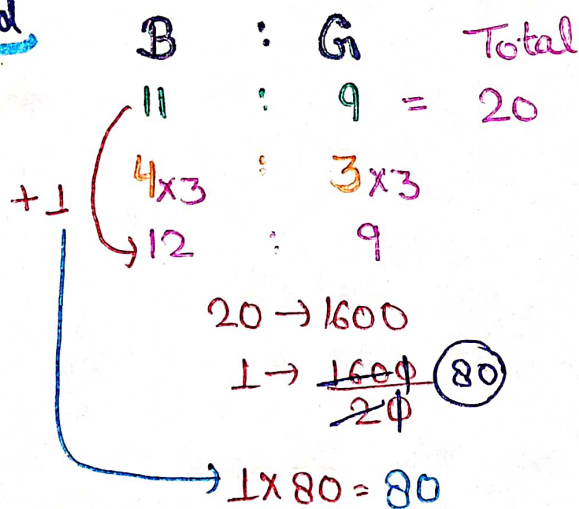 d
B : G Total
11 : 9 = 20
4x3 : 3x3
+1
12 : 9
20 → 1600
1 → 1600/20 80
1x80 = 80